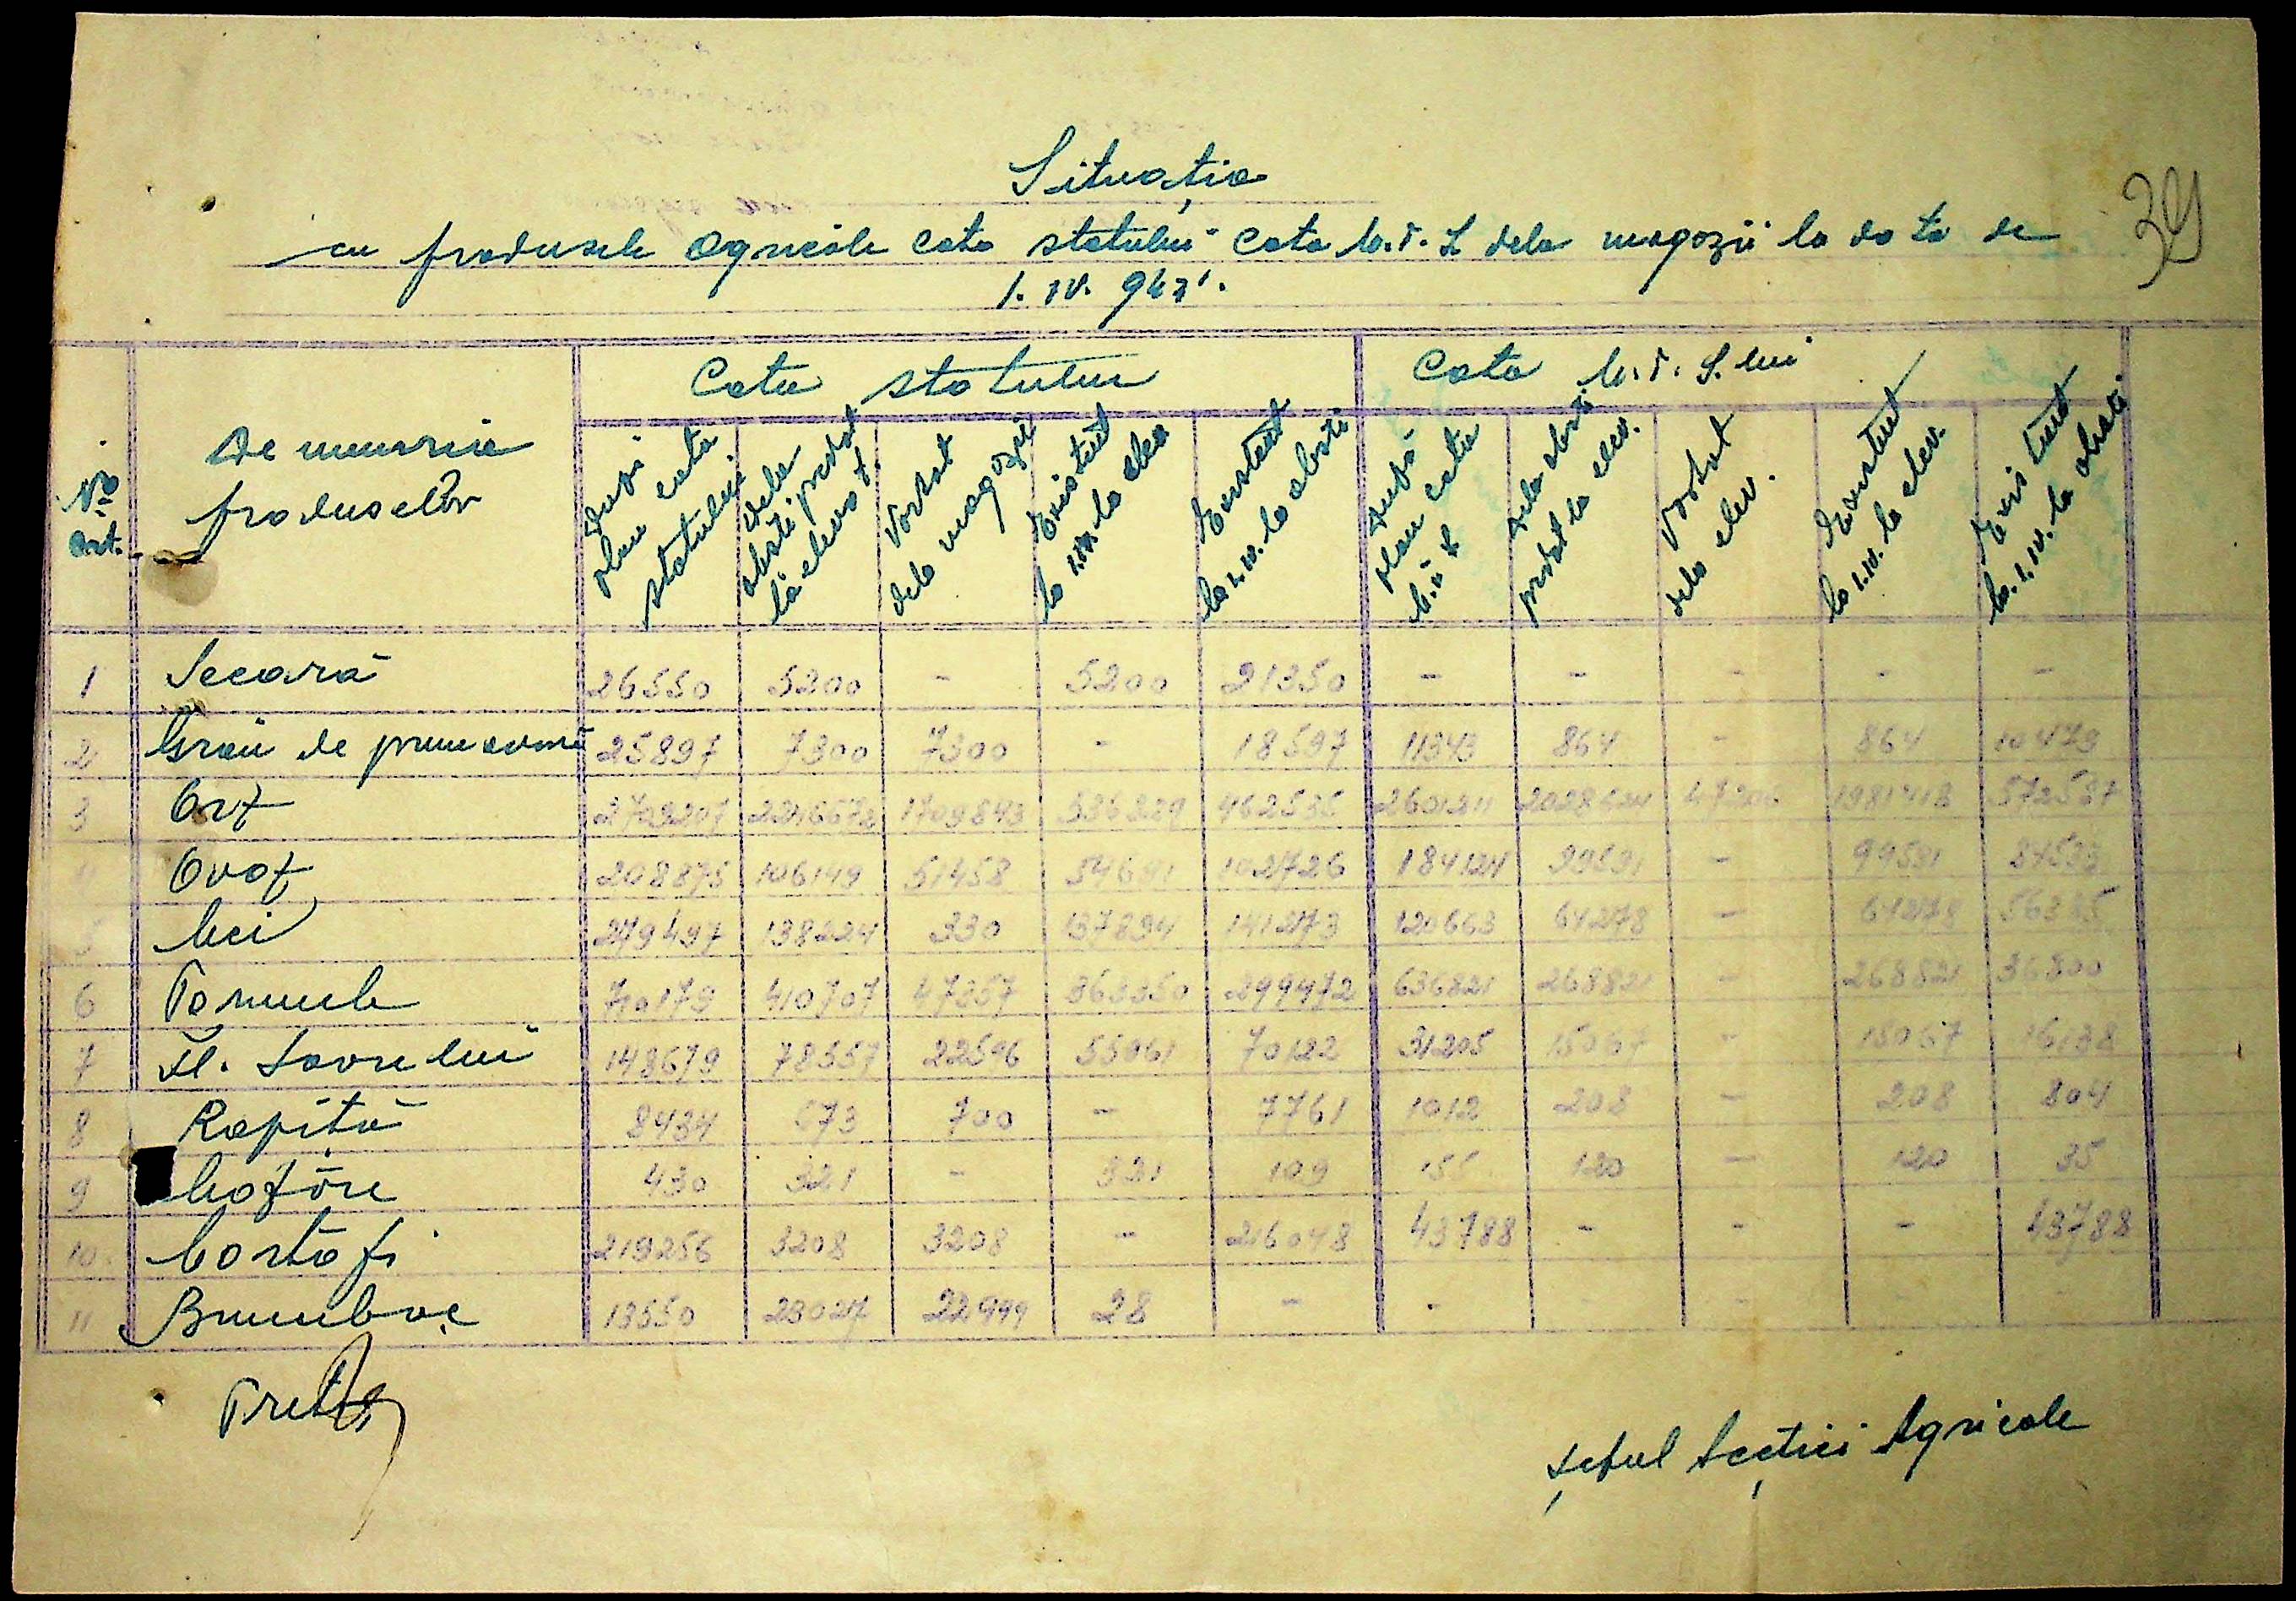 39
Situația
cu produsele agricole cota statului - cota M.T.S dela magazii la data de
1. IV. 943.
No crt.
Denumirea produselor
Cota statului
Cota M.T.S. lui
După plan cota statului
dela obști predat la elevat.
Vărsat dela magazii
Existent la 1.IV. la elev
Existent la 1.IV. la obști
După plan cota
dela obști predat la elev.
Vărsat dela elev.
Existent la 1.IV. la elev.
Existent la 1.IV. la obști
1 Secară 26550 5200 - 5200 21350 - - - - -
2 Grâu de primăvară 25897 7300 7300 - 18597 11343 864 - 864 10479
3 Orz 1709843 536829 462535 2601211 2028624 1981418 572587
Ovăz 208875 106149 51458 54691 102726 184124 99591 - 99591 84533
Mei 279497 138224 330 137894 141273 120663 64278 - 64278 56385
6 710179 410707 47357 363350 299472 636821 268821 - 268821
7 Fl. Soarelui 148679 78557 22596 55961 70122 31205 15067 - 15067 16138
8 Rapiță 8434 673 700 - 7761 1012 208 - 208 804
9 Mazăre 430 321 - 321 109 155 120 - 120 35
10 Cartofi 219256 3208 3208 - 216048 43788 - - - 43788
11 Bumbac 13550 23027 22999 28 - - - - - -
Pretor
Șeful Secției Agricole